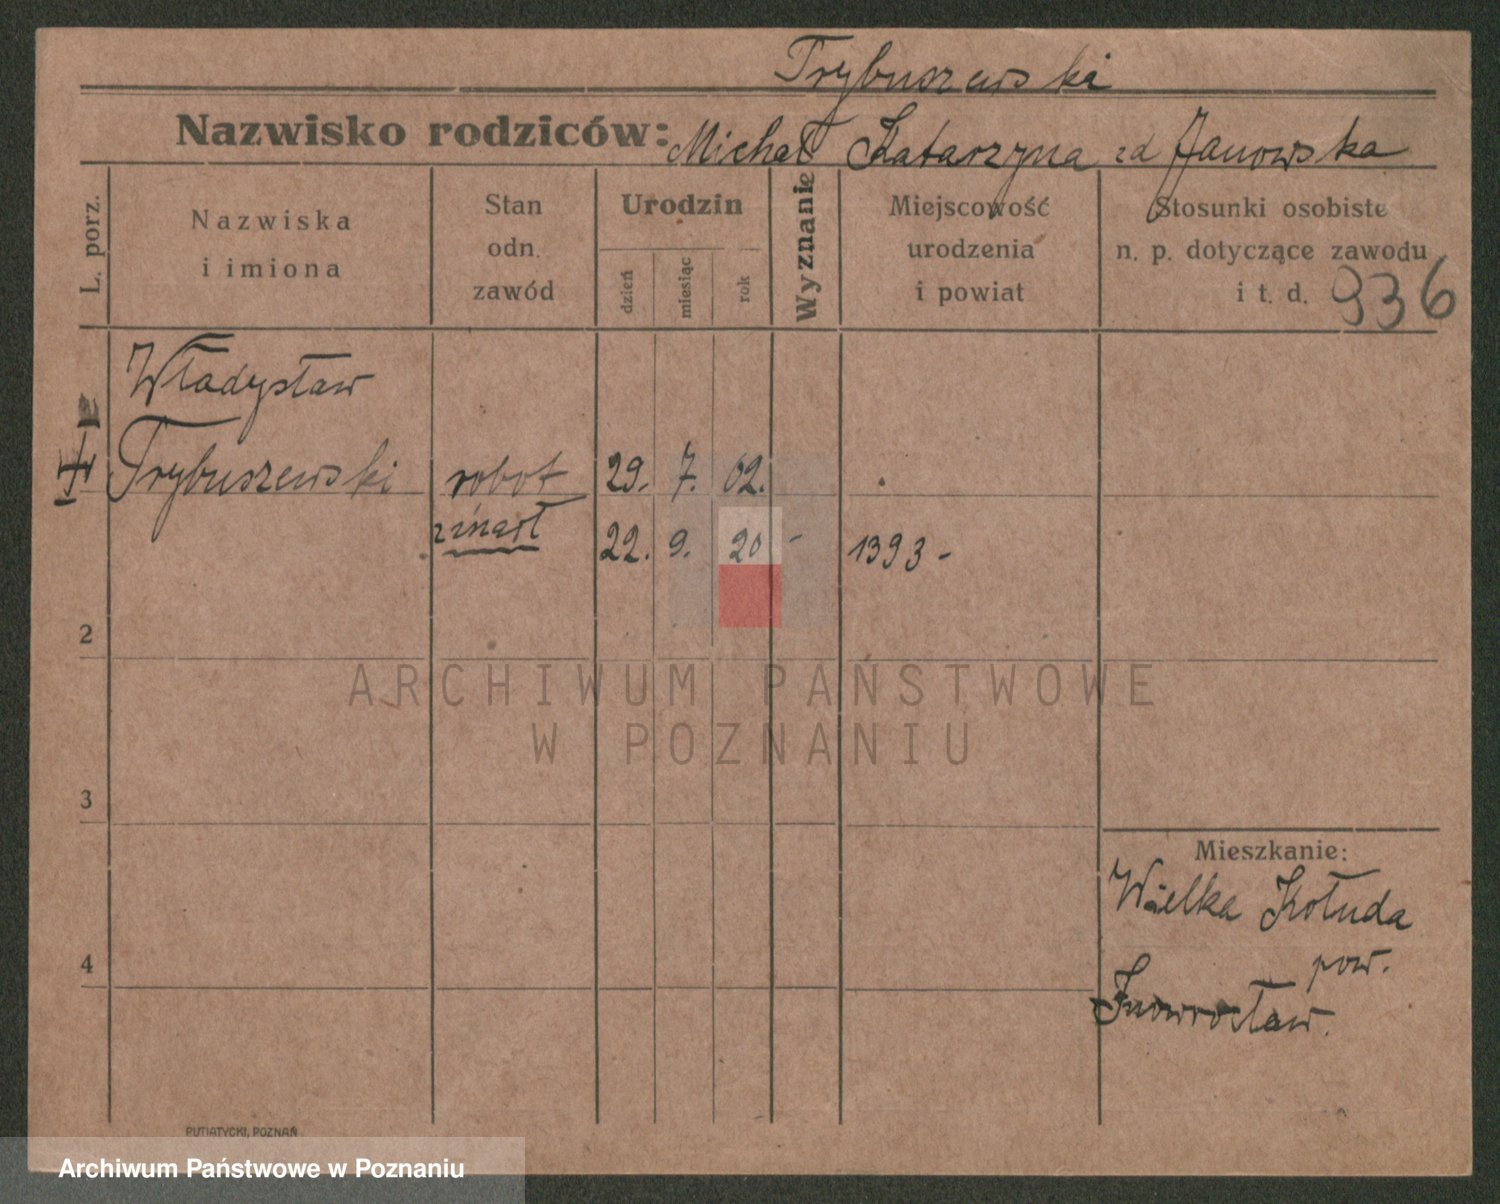 Trybuszewski
Nazwisko rodziców: Michał Katarzyna zd Janowska
L. porz.
Nazwiska
i imiona
Stan
odn.
zawód
Urodzin
dzień
miesiąc
rok
Wyznanie
Miejscowość
urodzenia
i powiat
Stosunki osobiste
n. p. dotyczące zawodu
i t. d. 936
Władysław
Trybuszewski robot 29. 7. 02.
zmarł 22. 9. 20 - 1393 -
2
ARCHIWUM PAŃSTWOWE
W POZNANIU
3
Mieszkanie:
Wielka Kołuda
4
pow.
Inowrosław.
PUTIATYCKI, POZNAŃ
Archiwum Państwowe w Poznaniu